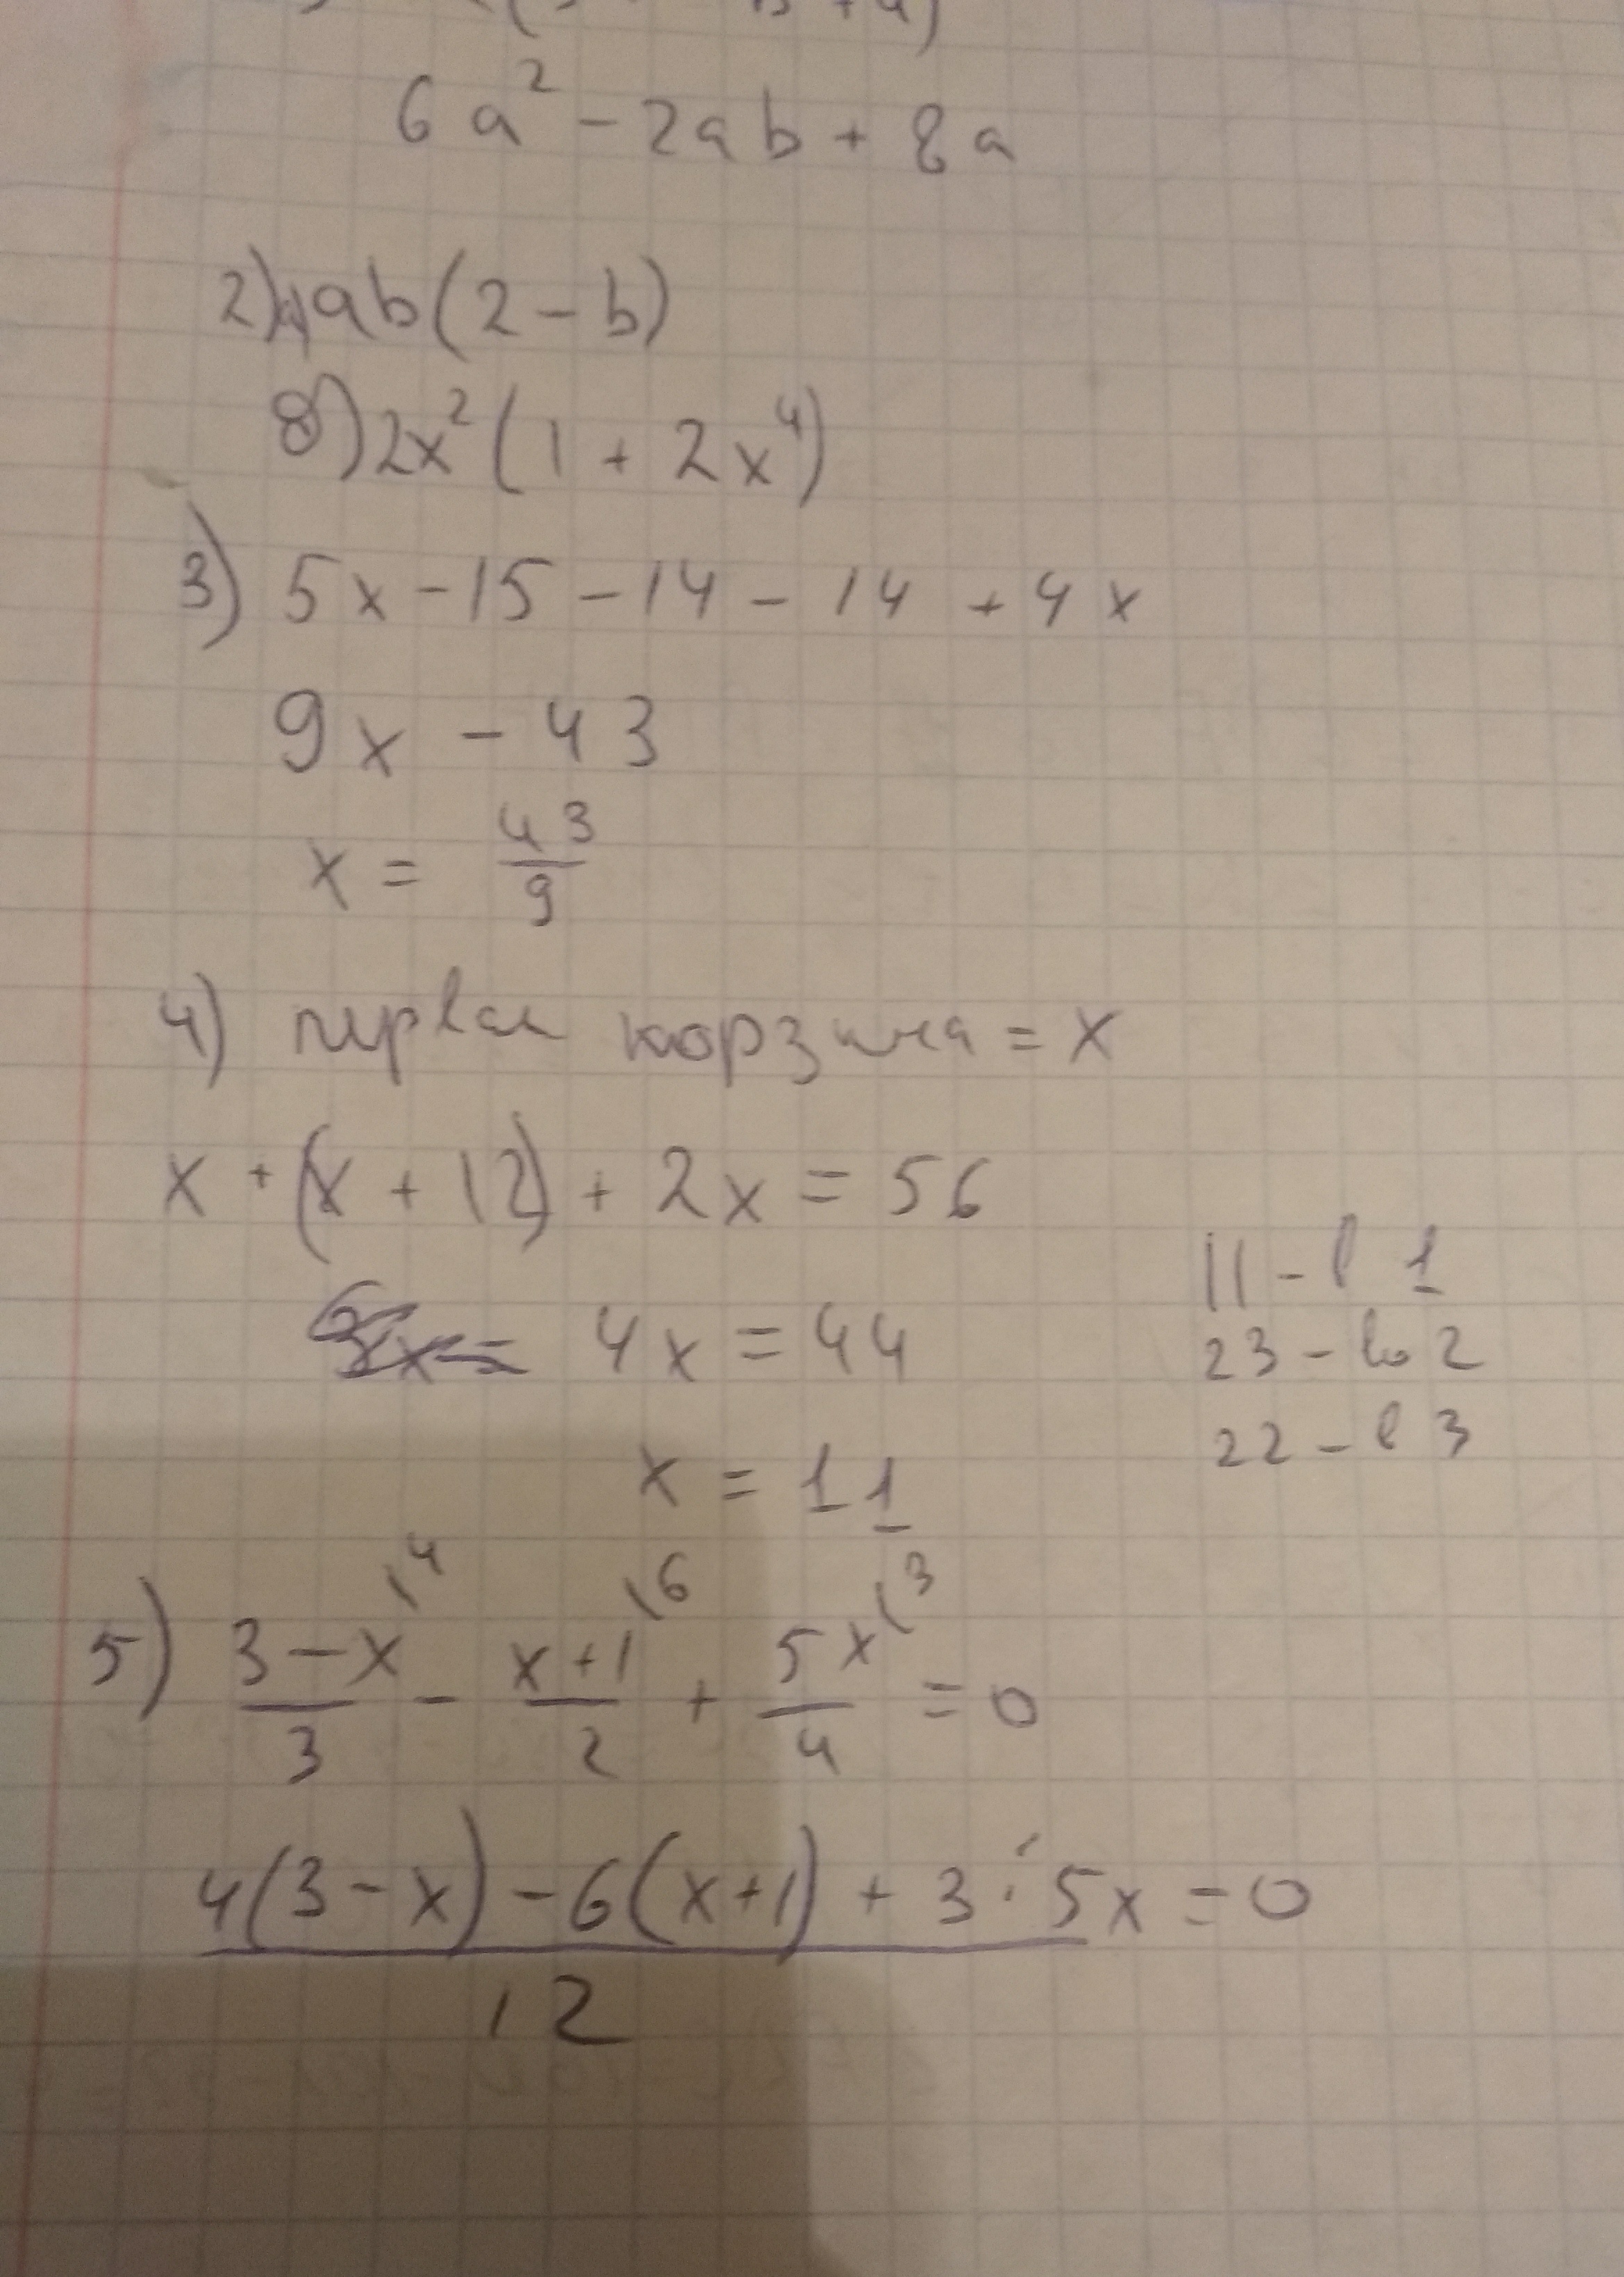 6a² - 2ab + 8a
2) 4ab(2 - b)
8) 2x²(1 + 2x⁴)
3) 5x - 15 - 14 - 14 + 4x
9x - 43
x = 43/9
4) первая корзина = x
x + (x + 12) + 2x = 56
4x = 44
11 - в 1
23 - во 2
22 - в 3
x = 11
5) (3 - x)/3 \4 - (x + 1)/2 \6 + 5x/4 \3 = 0
4(3 - x) - 6(x + 1) + 3 · 5x = 0
12